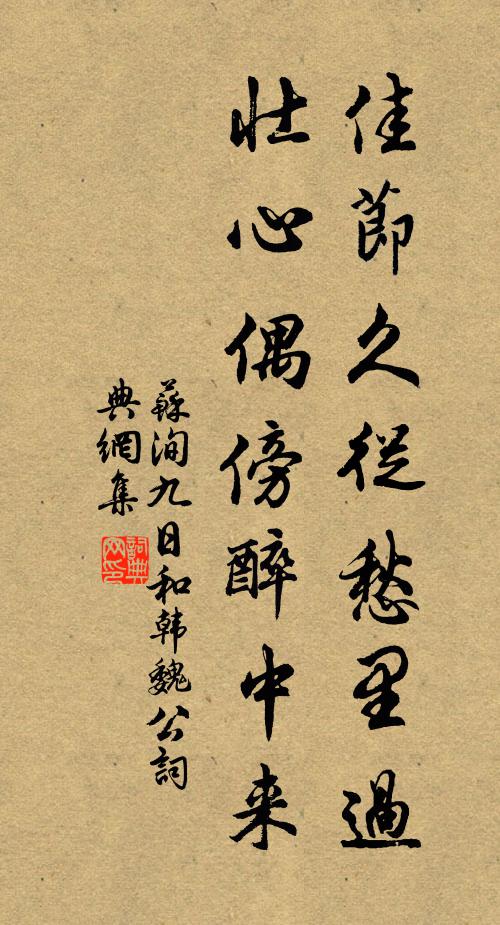 佳節久從愁里過
壯心偶傍醉中來
蘇洵九日和韩魏公詞
典網集
詞典
网印